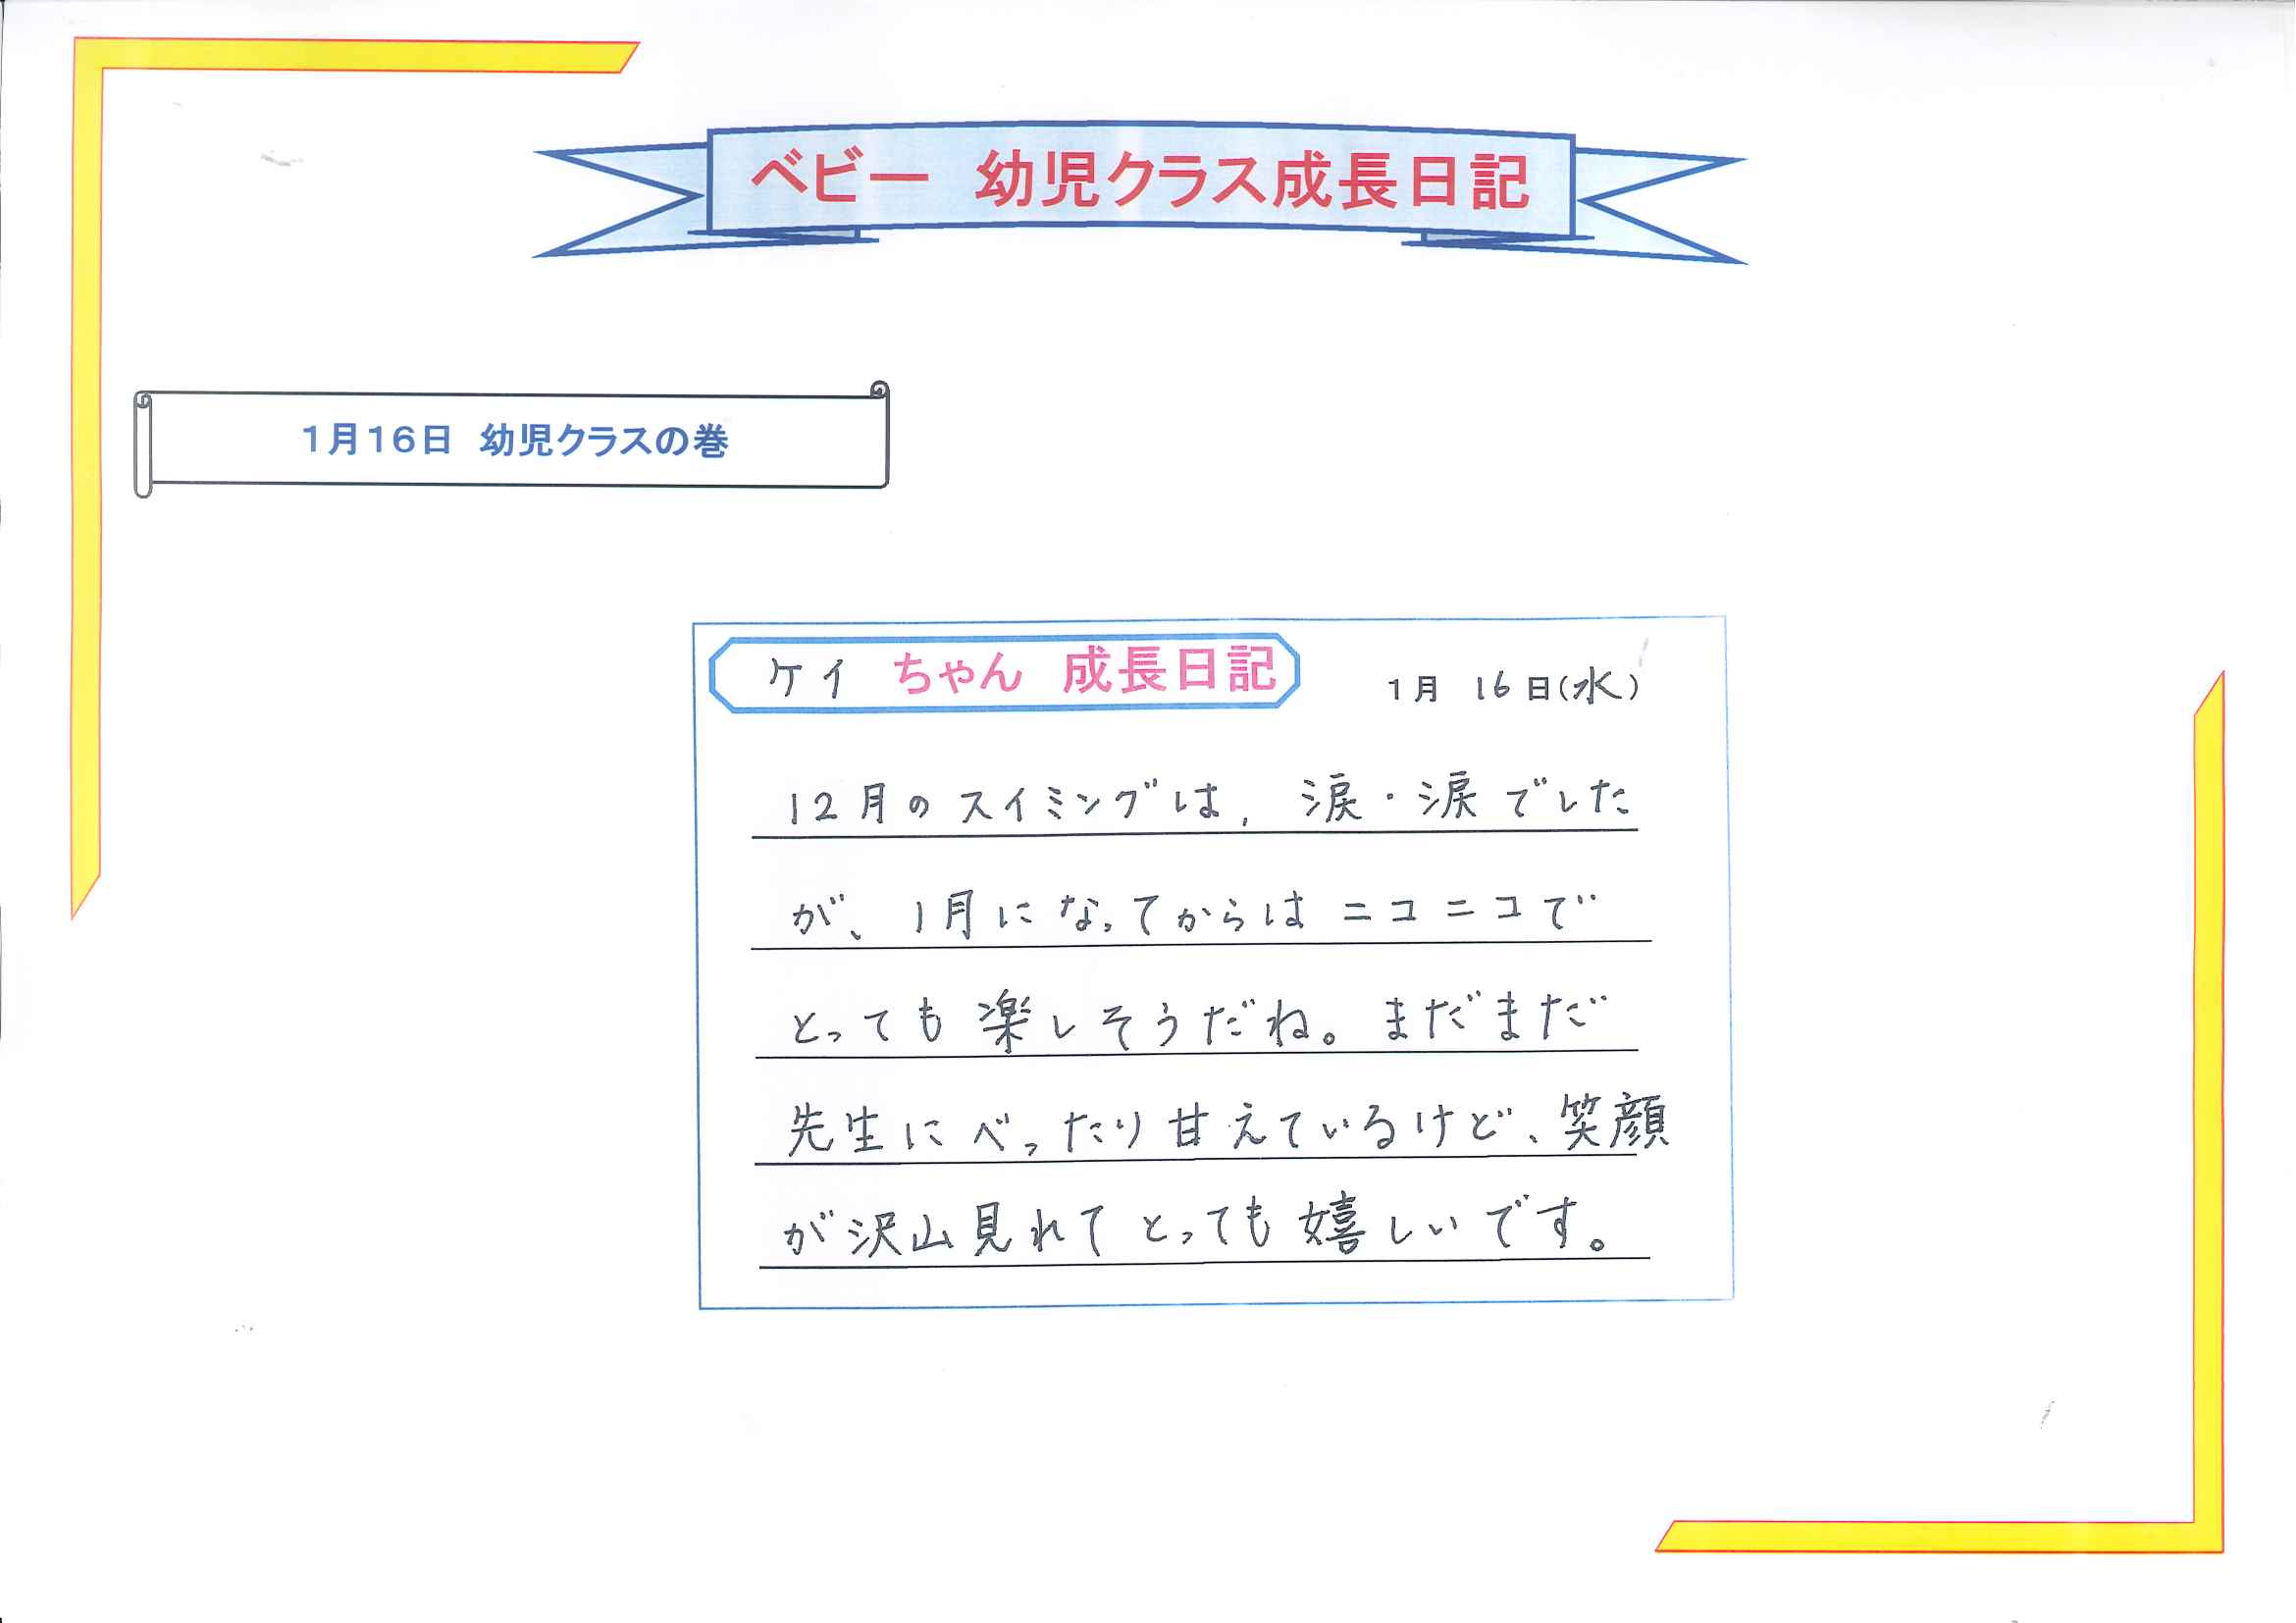 ベビー　幼児クラス成長日記
1月16日　幼児クラスの巻
ケイ ちゃん　成長日記
1月 16日(水)
12月のスイミングは, 涙・涙でした
が、1月になってからはニコニコで
とっても楽しそうだね。まだまだ
先生にべったり甘えているけど、笑顔
が沢山見れてとっても嬉しいです。